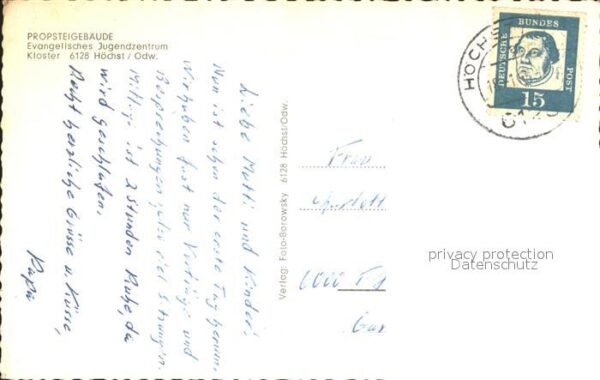 PROPSTEIGEBÄUDE
Evangelisches Jugendzentrum
Kloster 6128 Höchst / Odw.
Liebe Mutti und Kinder!
Nun ist schon der erste Tag herum.
Wir haben fast nur Vorträge und
Besprechungen, also viel Sitzungen.
Mittags ist 2 Stunden Ruhe, da
wird geschlafen.
Recht herzliche Grüsse u. Küsse,
Papi
Verlag: Foto-Borowsky 6128 Höchst/Odw.
HÖCHS
DEUTSCHE BUNDES POST
15
Frau
6000 F
privacy protection
Datenschutz